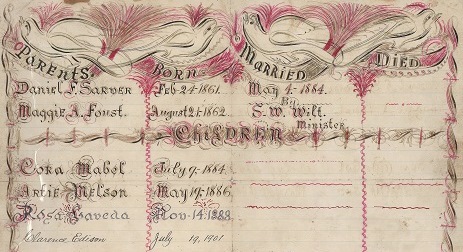 Parents. Born Married Died
Daniel F. Sarver Feb-24-1861. May 4-1884.
By
Maggie A. Foust. August 21-1862. S. W. Wilt.
Minister
Children
Cora Mabel July 9-1884.
Artie Melson May 19-1886.
Rosa Laveda Nov-14-1888.
Clarence Edison July 19, 1901